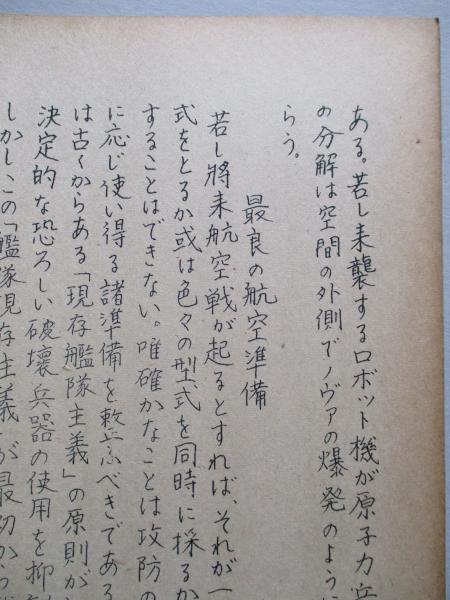 ある。若し来襲するロボット機が原子力兵
の分解は空間の外側でノヴァの爆発のように
らう。
最良の航空準備
若し將来航空戦が起るとすれば、それが一
式をとるか或は色々の型式を同時に採るか
することはできない。唯確かなことは攻防の
に応じ使い得る諸準備を整ふべきである
は古くからある「現存艦隊主義」の原則が
決定的な恐ろしい破壊兵器の使用を抑制
しかし、この「艦隊現存主義」が最初から